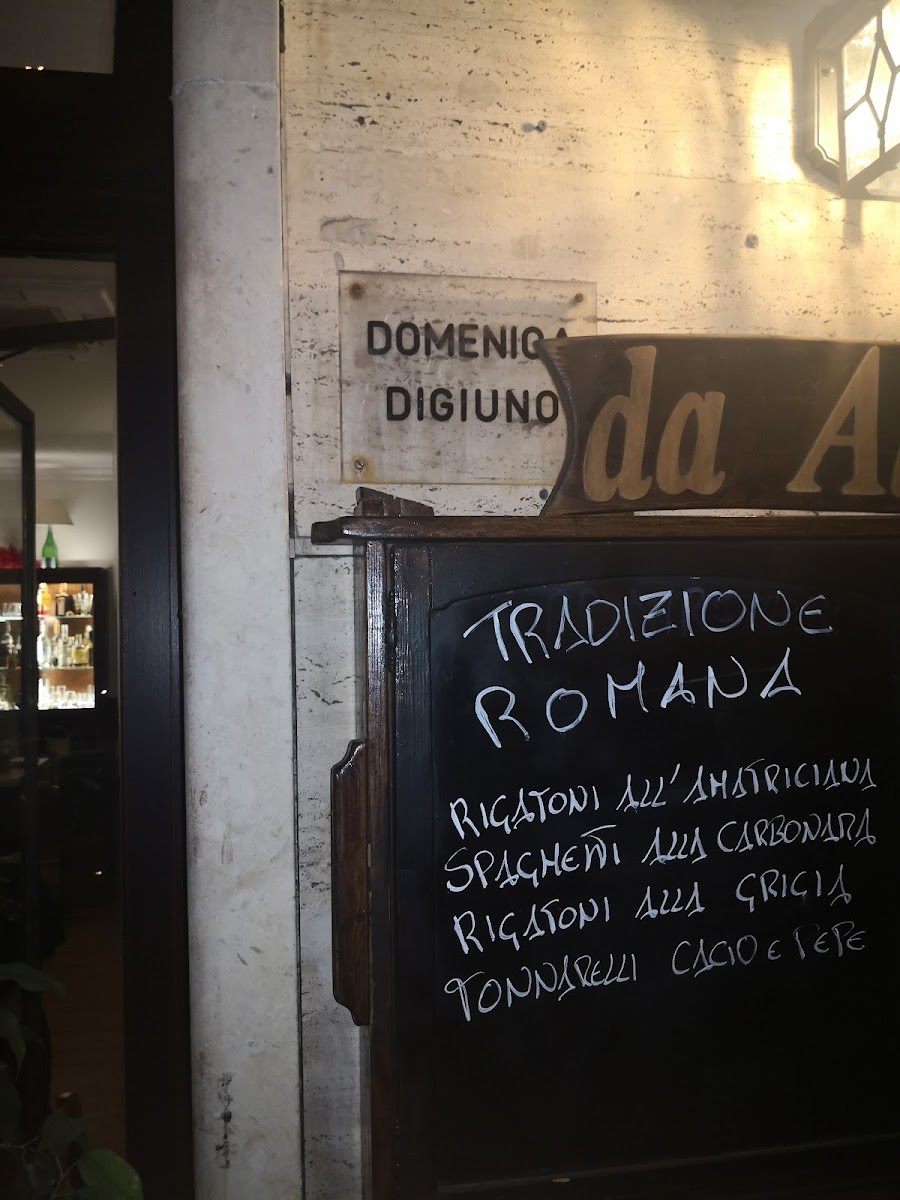 DOMENICA
DIGIUNO
da A
TRADIZIONE
ROMANA
RIGATONI ALL'AMATRICIANA
SPAGHETTI ALLA CARBONARA
RIGATONI ALLA GRIGIA
TONNARELLI CACIO E PEPE